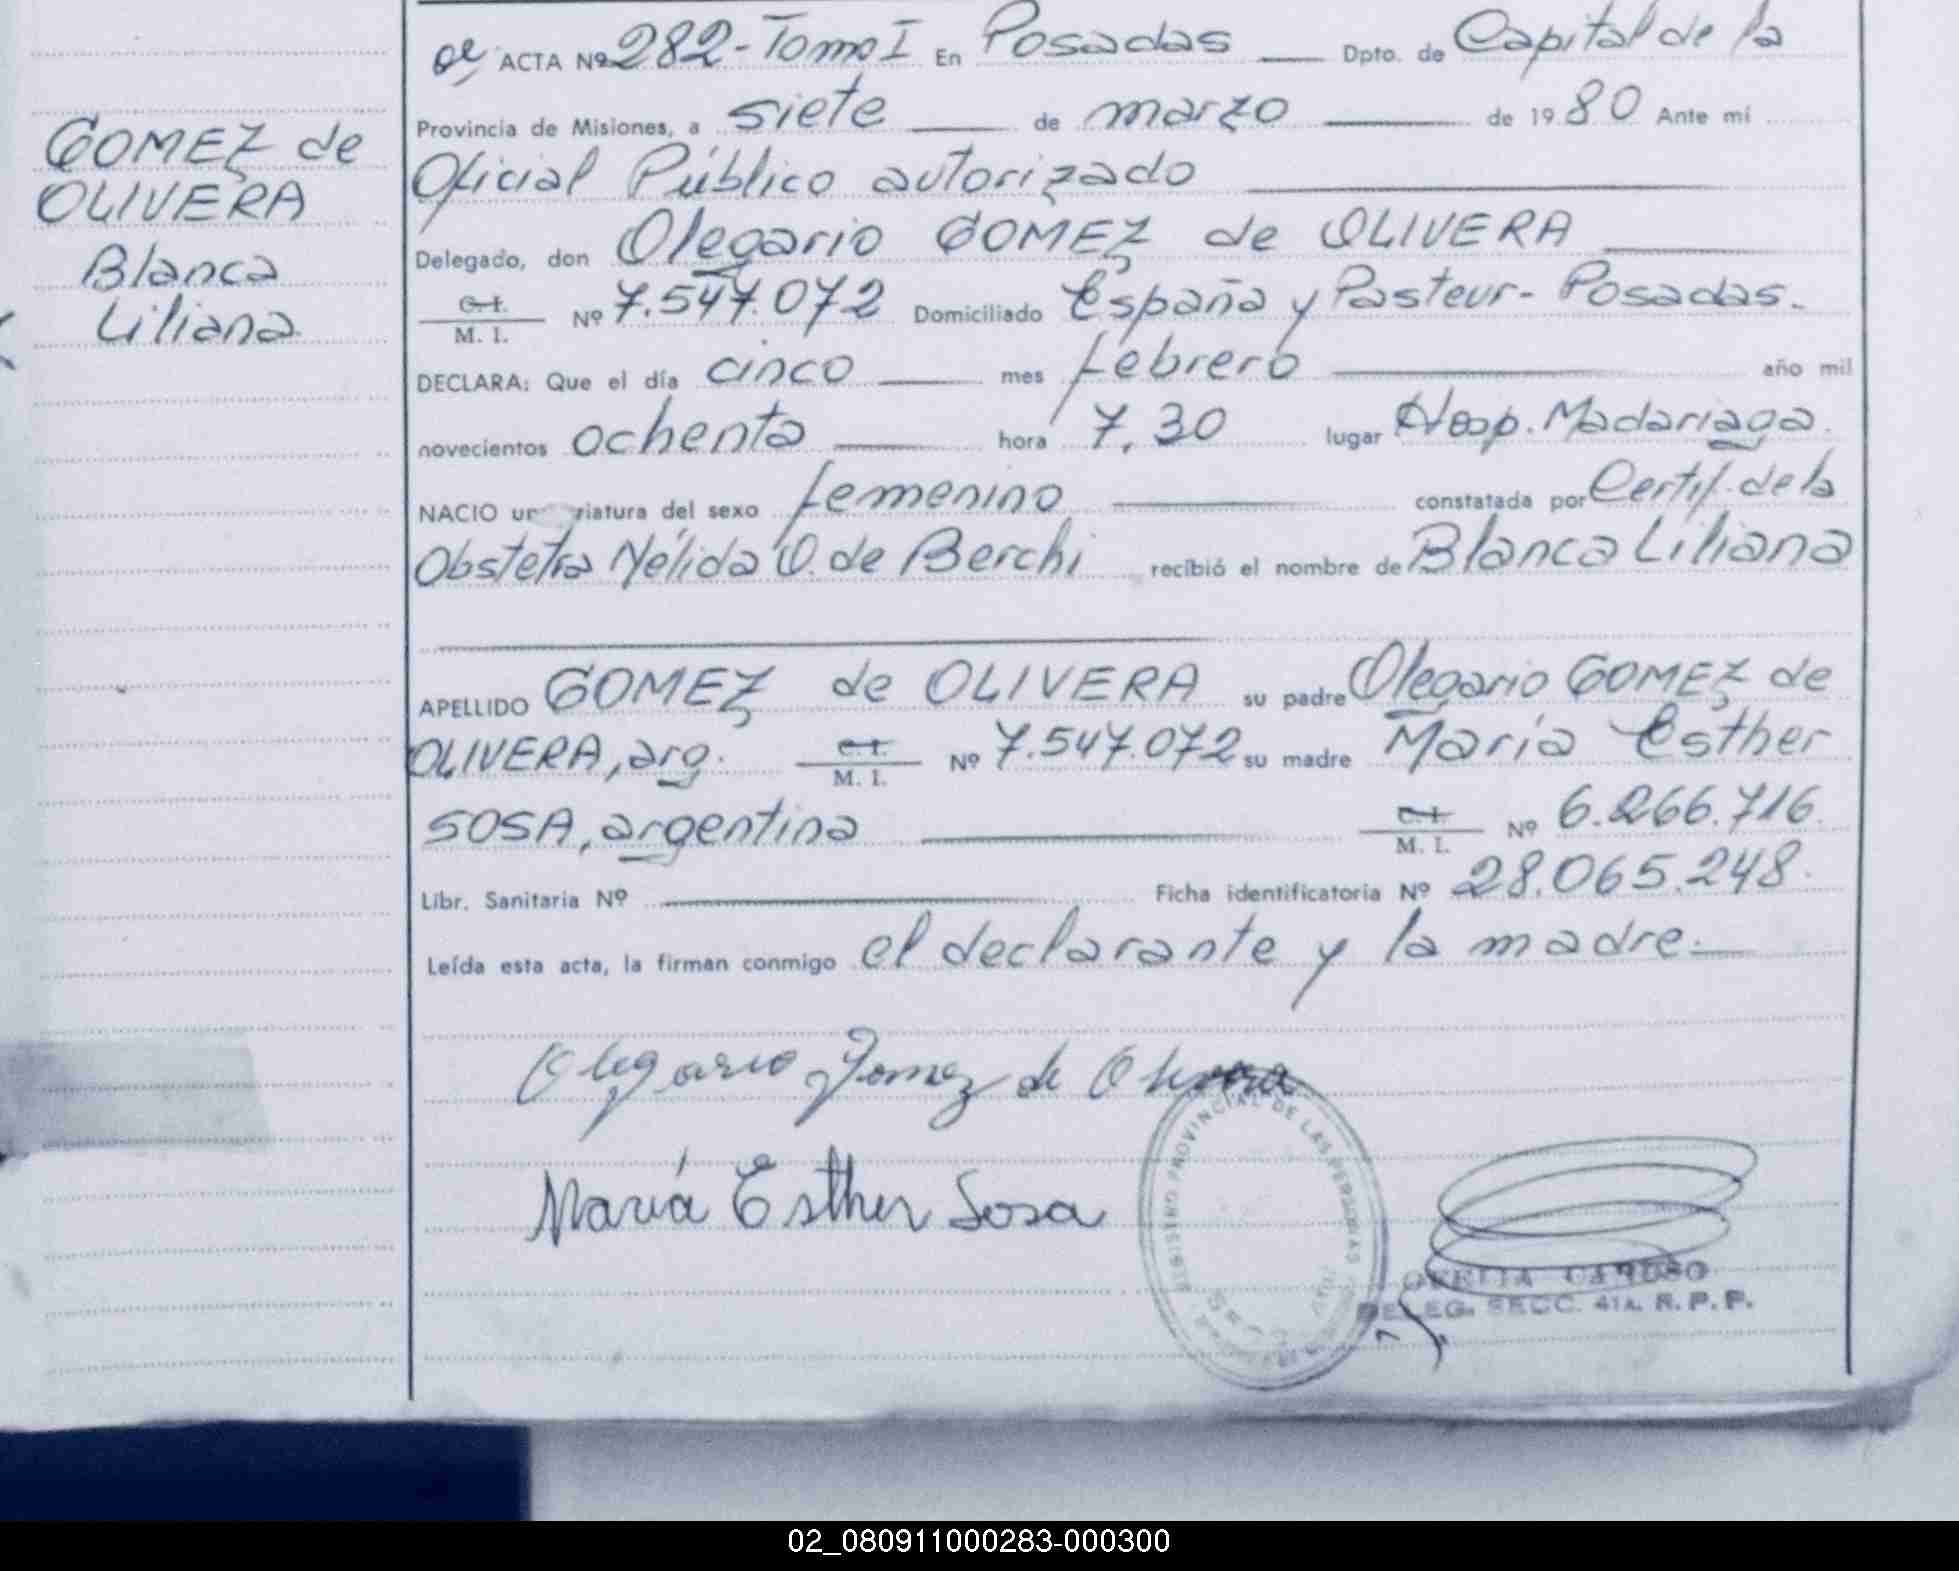 GOMEZ de
OLIVERA
Blanca
Liliana
ACTA Nº 282-Tomo I En Posadas Dpto. de Capital de la
Provincia de Misiones, a siete de marzo de 1980 Ante mí
Oficial Público autorizado
Delegado, don Olegario GOMEZ de OLIVERA
C.I.
M. I. Nº 7.547.072 Domiciliado España y Pasteur - Posadas.
DECLARA: Que el día cinco mes febrero año mil
novecientos ochenta hora 7,30 lugar Hosp. Madariaga.
NACIO un riatura del sexo femenino constatada por Certif. de la
Obstetra Nélida O. de Berchi recibió el nombre de Blanca Liliana
APELLIDO GOMEZ de OLIVERA su padre Olegario GOMEZ de
OLIVERA, arg. C.I.
M. I. Nº 7.547.072 su madre María Esther
SOSA, argentina C.I.
M. I. Nº 6.266.716.
Libr. Sanitaria Nº Ficha identificatoria Nº 28.065.248.
Leída esta acta, la firman conmigo el declarante y la madre.
Olegario Gomez de Olivera
María Esther Sosa
REGISTRO PROVINCIAL DE LAS PERSONAS
OFELIA CARDOSO
DELEG. SECC. 41A. R.P.P.
02_080911000283-000300